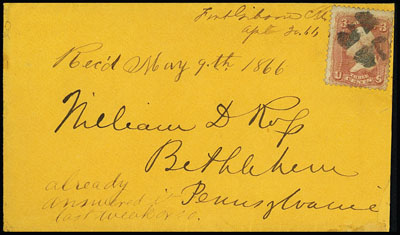 Fort Gibson C.N.
Apl 30. 66
Rec'd May 9th 1866
3 3
U THREE CENTS S
William D Ross
Bethlehem
Pennsylvania
already
answered in
last